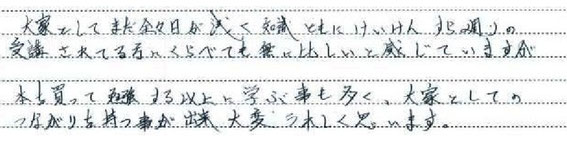 大家としてまだ全々日が浅く知識ともにけいけんすら周りの
受講されてる方にくらべても無に比しいと感じていますが
本を買って勉強する以上に学ぶ事も多く、大家としての
つながりを持つ事が出来大変うれしく思います。